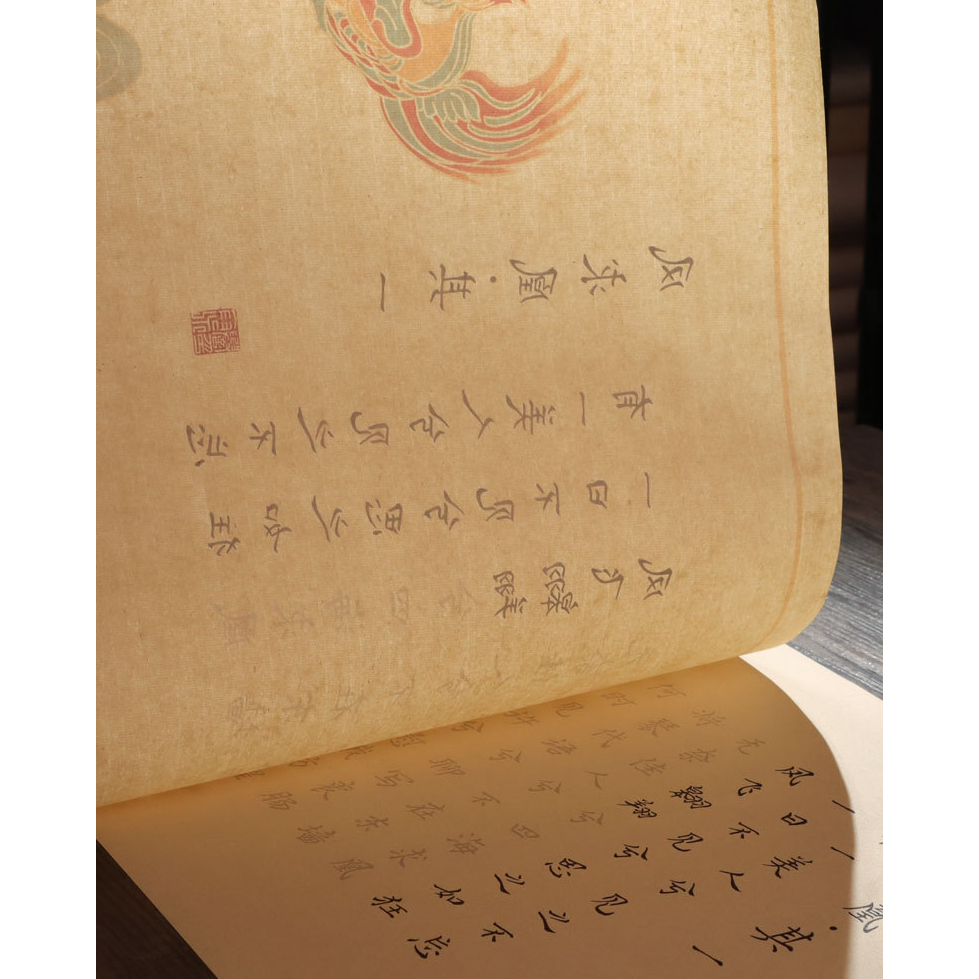 凤求凰·其一
有一美人兮见之不忘
一日不见兮思之如狂
凤飞翱翔
兮四海求凰
凰·其一
一美人兮见之不忘
一日不见兮思之如狂
凤飞翱翔兮四海求凰
无奈佳人兮不在东墙
将琴代语兮聊写衷肠
何时见许兮